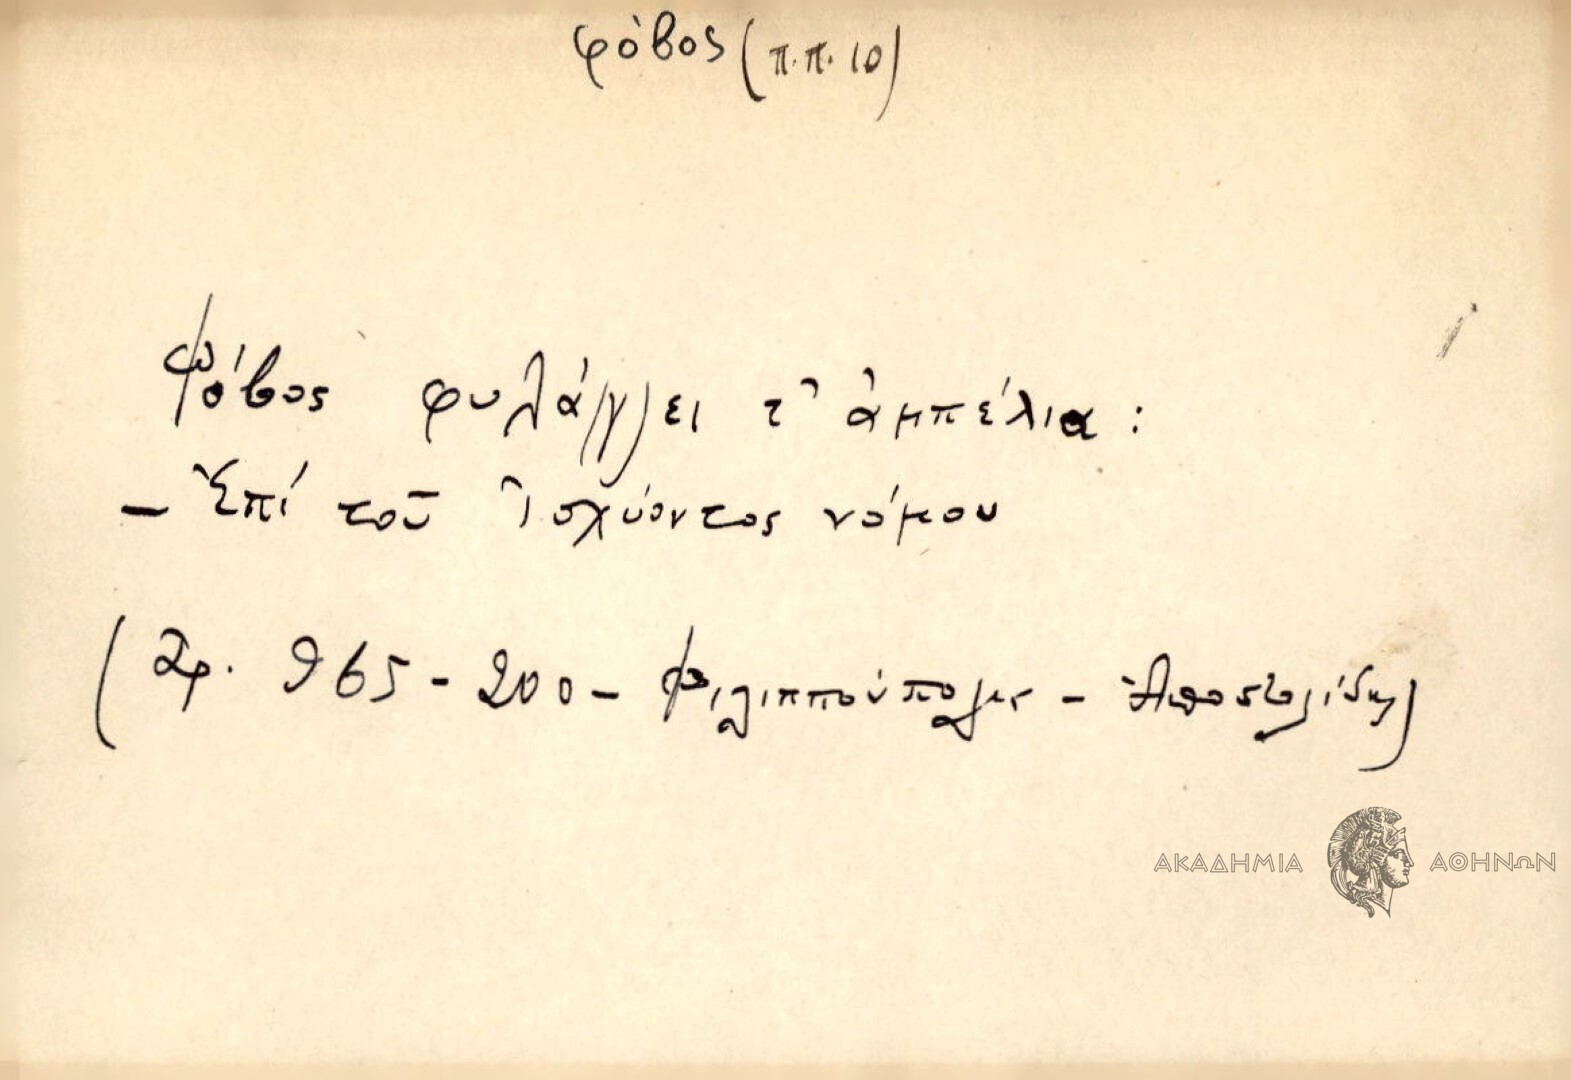 φόβος (π.π. 10)
Φόβος φυλά(γ)ει τ' ἀμπέλια:
– Ἐπί τοῦ Ἰσχύοντος νόμου
(Ἀρ. 965 - 200 – Φιλιππούπολις – Ἀποστολίδης)
ΑΚΑΔΗΜΙΑ ΑΘΗΝΩΝ